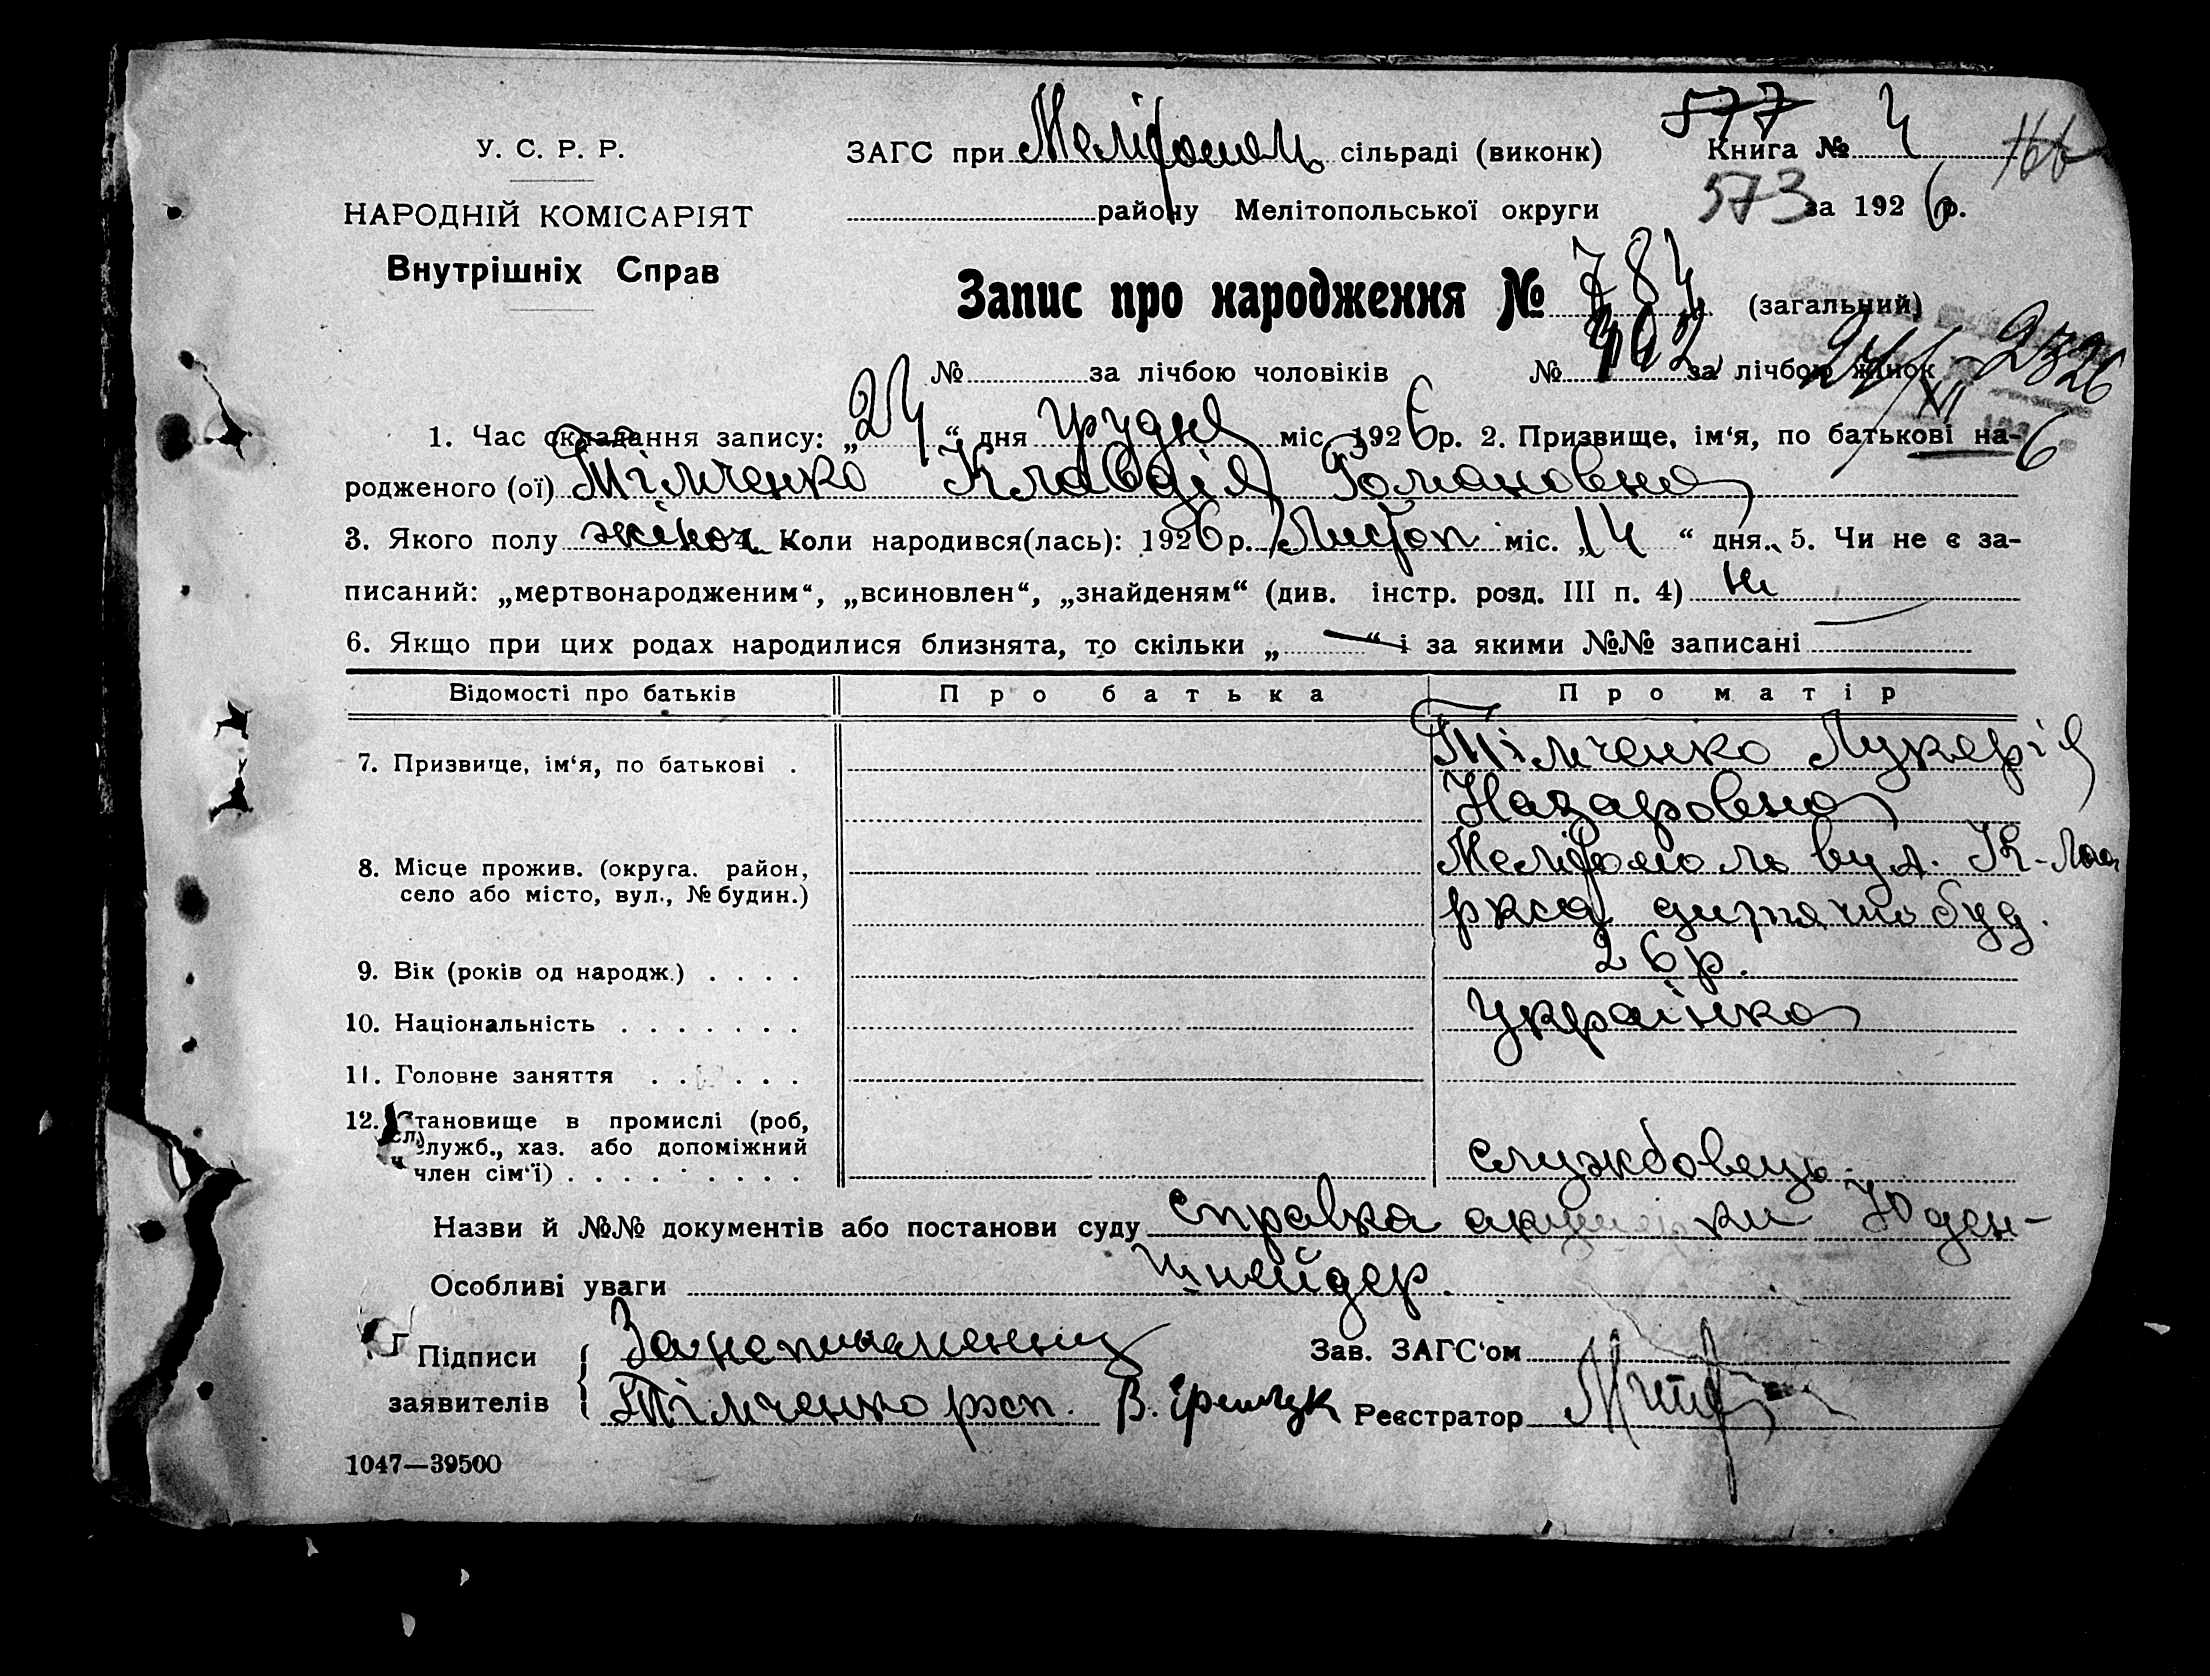 577
У. С. Р. Р.
ЗАГС при Мелітополь сільраді (виконк) Книга № 4
НАРОДНІЙ КОМІСАРІЯТ
району Мелітопольської округи 573 за 1926 р.
Внутрішніх Справ
Запис про народження № 784 (загальний)
№ за лічбою чоловіків № 402 за лічбою жінок
1. Час складання запису: „24“ дня грудня міс. 1926 р. 2. Призвище, ім‘я, по батькові на-
родженого (ої) Тімченко Клавдія Романовна
3. Якого полу жіноч. 4. Коли народився(лась): 1926 р. Листоп міс. „14“ дня. 5. Чи не є за-
писаний: „мертвонародженим“, „всиновлен“, „знайденям“ (див. інстр. розд. III п. 4) ні
6. Якщо при цих родах народилися близнята, то скільки „ — “ і за якими №№ записані —
Відомості про батьків Про батька Про матір
7. Призвище, ім‘я, по батькові . Тімченко Лукерія
Назаровна
8. Місце прожив. (округа, район, Мелітополь вул. К-Ма
село або місто, вул., № будин.) ркса дитячий буд.
9. Вік (років од народж.) . . . . 26 р.
10. Національність . . . . . . . українка
11. Головне заняття . . . . . .
12. Становище в промислі (роб,
служб., хаз. або допоміжний
член сім‘ї) . . . . . . . . службовець
Назви й №№ документів або постанови суду справка акушерки Юден-
Особливі уваги шнейдер.
Підписи За неписьменну Зав. ЗАГС‘ом
заявителів Тімченко росп. В. Грищук Реєстратор
1047—39500